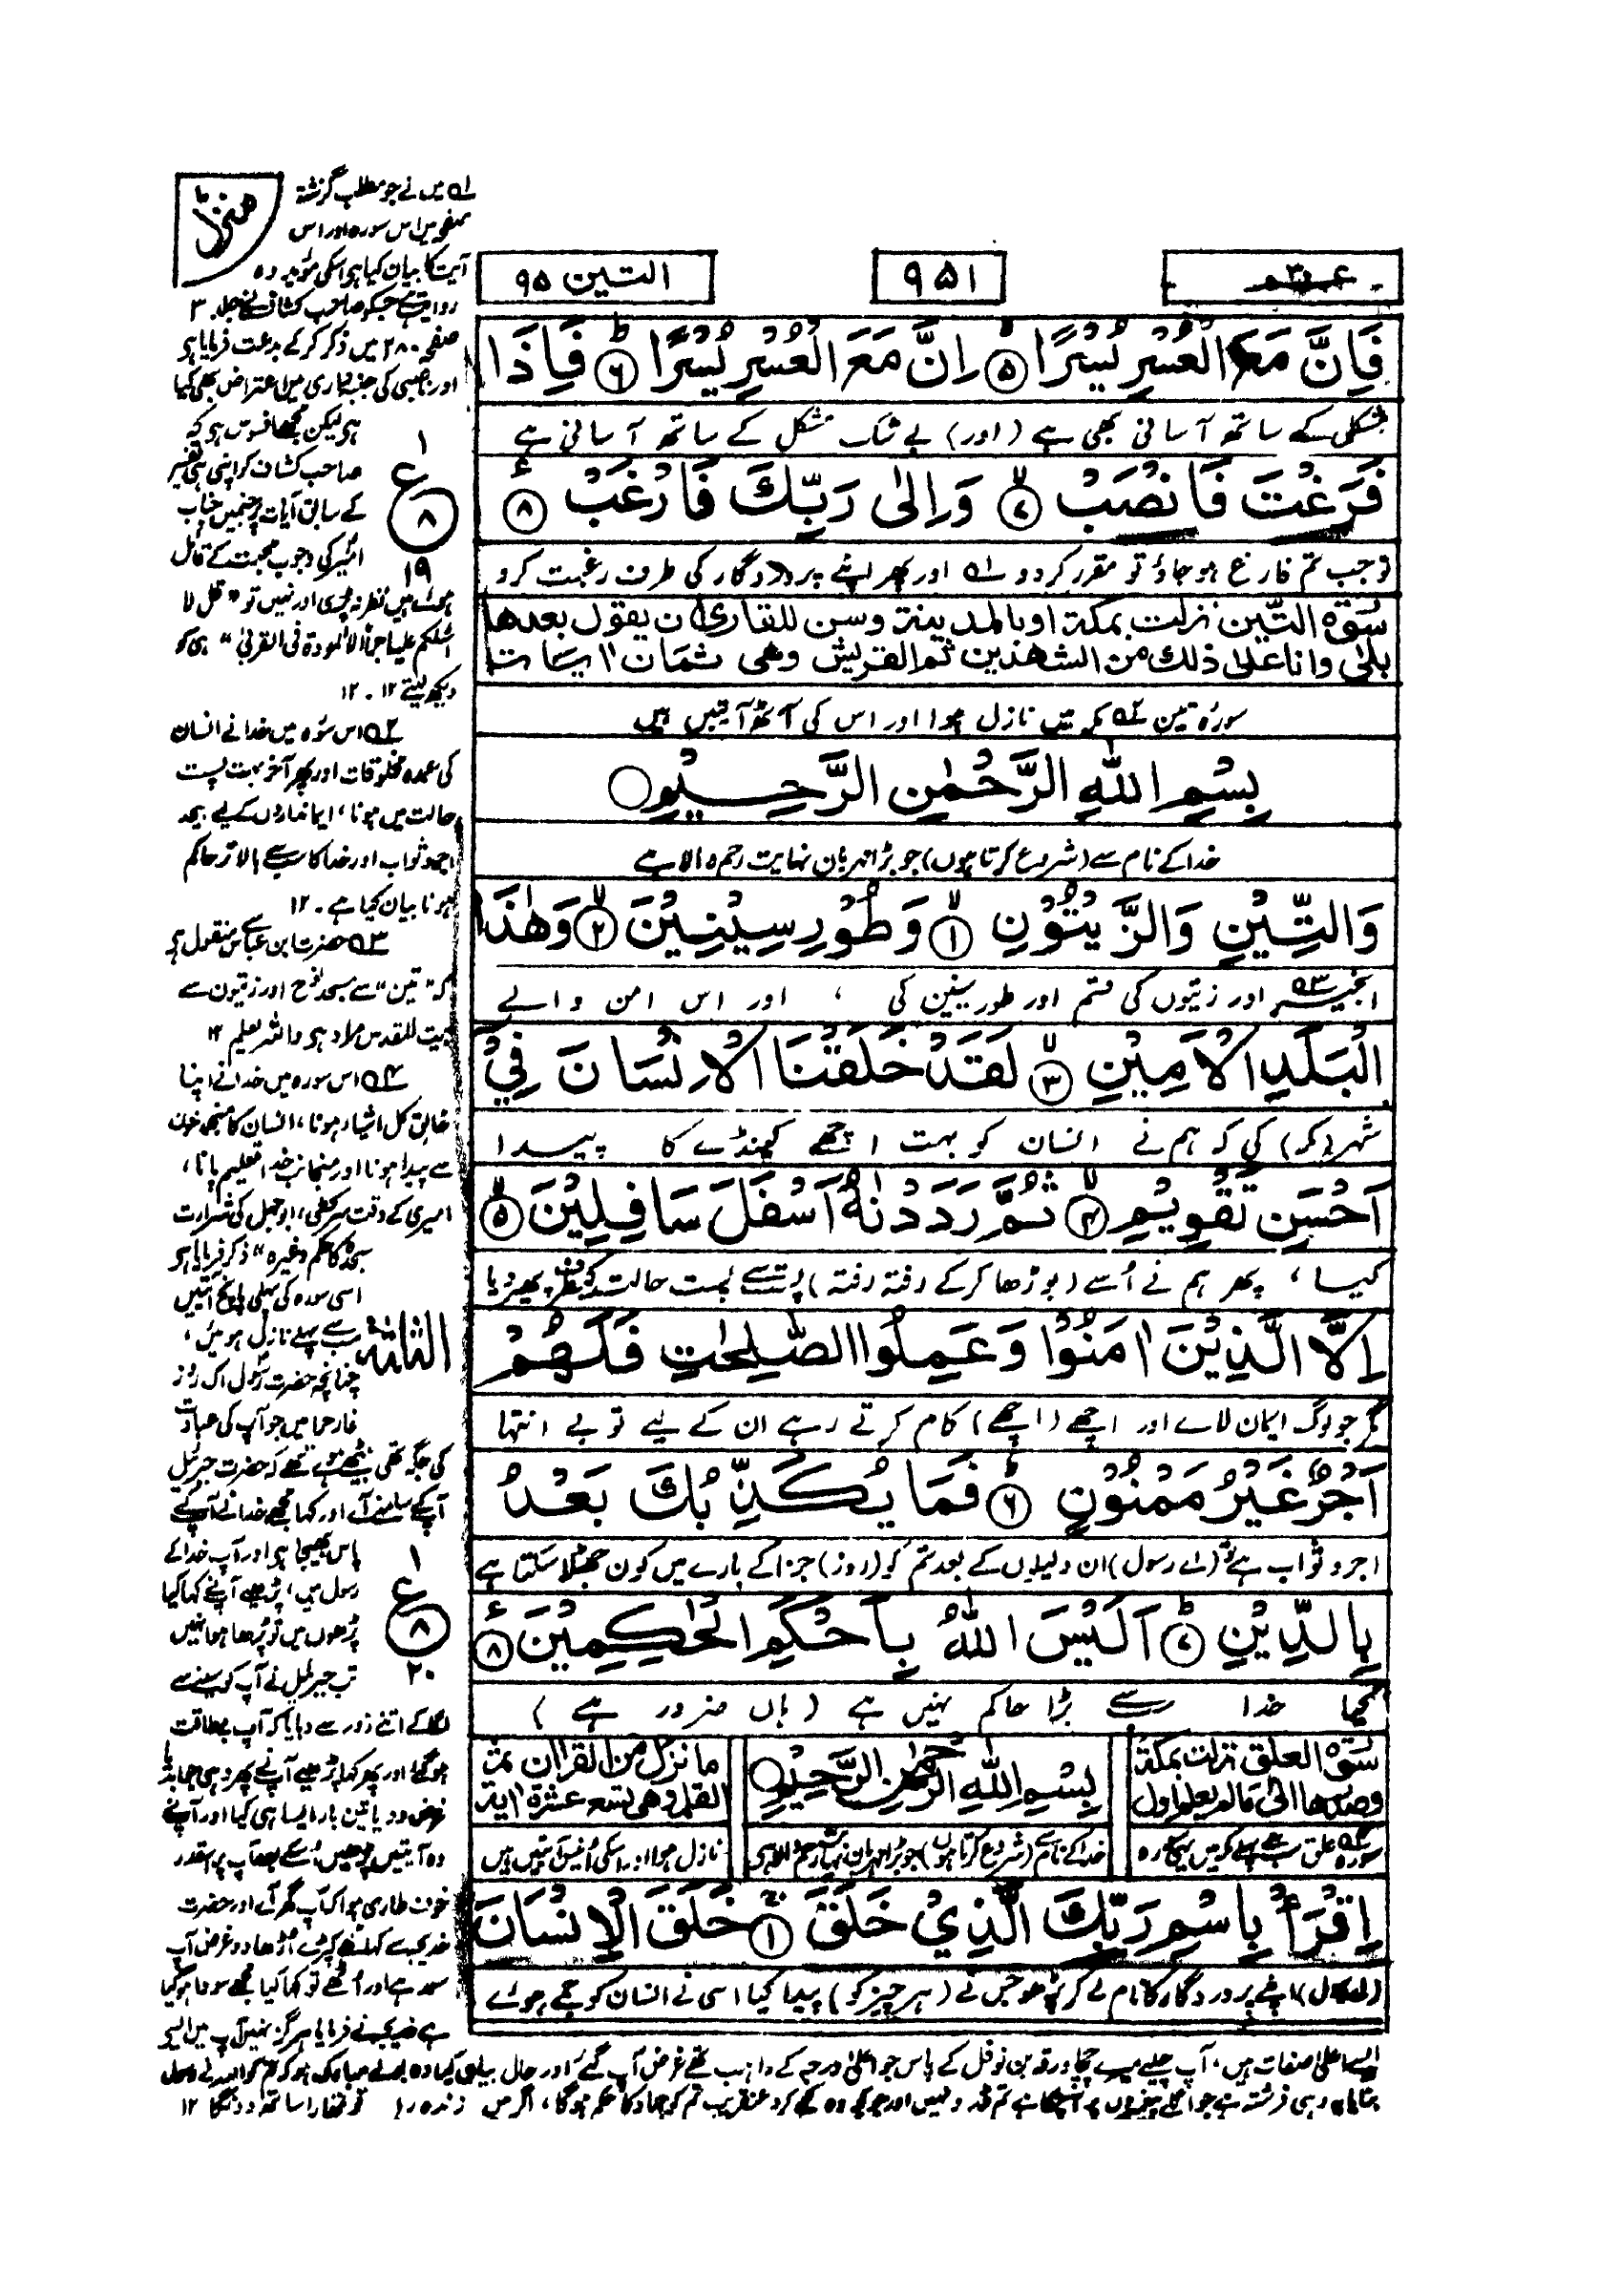 عم ۳۰
۹۵۱
التین ۹۵
فَاِنَّ مَعَ الْعُسْرِ يُسْرًا ۵ اِنَّ مَعَ الْعُسْرِ يُسْرًا ۶ فَاِذَا
مشکلی کے ساتھ آسانی بھی ہے (اور) بے شک مشکل کے ساتھ آسانی ہے
فَرَغْتَ فَانْصَبْ ۷ وَاِلٰى رَبِّكَ فَارْغَبْ ۸
تو جب تم فارغ ہو جاؤ تو مقرر کر دو ۱ اور پھر اپنے پروردگار کی طرف رغبت کرو
سورة التّين نزلت بمكة او بالمدينة وسن للقارئ ان يقول بعدها
بلى وانا على ذلك من الشهدين ثم القريش وهى ثمان ايات
سورۂ تین ۲ مکہ میں نازل ہوا اور اس کی آٹھ آیتیں ہیں
بِسْمِ اللهِ الرَّحْمٰنِ الرَّحِيْمِ
خدا کے نام سے (شروع کرتا ہوں) جو بڑا مہربان نہایت رحم والا ہے
وَالتِّيْنِ وَالزَّيْتُوْنِ ۱ وَطُوْرِ سِيْنِيْنَ ۲ وَهٰذَا
انجیر ۳ اور زیتوں کی قسم اور طور سینین کی ، اور اس امن والے
الْبَلَدِ الْاَمِيْنِ ۳ لَقَدْ خَلَقْنَا الْاِنْسَانَ فِيْٓ
شہر (مکہ) کی کہ ہم نے انسان کو بہت اچھے کینڈے کا پیدا
اَحْسَنِ تَقْوِيْمٍ ۴ ثُمَّ رَدَدْنٰهُ اَسْفَلَ سَافِلِيْنَ ۵
کیا ، پھر ہم نے اُسے (بوڑھا کرکے رفتہ رفتہ) پست سے پست حالت کی طرف پھیر دیا
اِلَّا الَّذِيْنَ اٰمَنُوْا وَعَمِلُوا الصّٰلِحٰتِ فَلَهُمْ
مگر جو لوگ ایمان لائے اور اچھے (اچھے) کام کرتے رہے ان کے لیے تو بے انتہا
اَجْرٌ غَيْرُ مَمْنُوْنٍ ۶ فَمَا يُكَذِّبُكَ بَعْدُ
اجر و ثواب ہے تو (اے رسول) ان دلیلوں کے بعد تم کو (روز) جزا کے بارے میں کون جھٹلا سکتا ہے
بِالدِّيْنِ ۷ اَلَيْسَ اللهُ بِاَحْكَمِ الْحٰكِمِيْنَ ۸
کیا خدا سب سے بڑا حاکم نہیں ہے (ہاں ضرور ہے)
سورة العلق نزلت بمكة
وصدرها الى مالم يعلم اول
بِسْمِ اللهِ الرَّحْمٰنِ الرَّحِيْمِ
ما نزل من القران ثم
القلم وهى تسع عشرة اية
سورہ ۴ علق سب سے پہلے مکہ میں یہی سورہ
خدا کے نام سے (شروع کرتا ہوں) جو بڑا مہربان نہایت رحم والا ہے
نازل ہوا اور اسکی اُنیس آیتیں ہیں
اِقْرَاْ بِاسْمِ رَبِّكَ الَّذِيْ خَلَقَ ۱ خَلَقَ الْاِنْسَانَ
(اے رسول) اپنے پروردگار کا نام لے کر پڑھو جس نے (ہر چیز کو) پیدا کیا اسی نے انسان کو جمے ہوئے
منزل
۱ میں نے جو مطلب گزشتہ
صفحہ میں اس سورہ اور اس
آیت کا بیان کیا ہے اسکی مؤید وہ
روایت ہے جسکو صاحب کشاف نے جلد ۳
صفحہ ۲۸۰ میں ذکر کرکے بدعت فرمایا ہے
اور ناصبی کی جنبداری میں اعتراض بھی کیا
ہے لیکن مجھے افسوس ہے کہ
صاحب کشاف کو اپنی ہی تفسیر
کے سابق آیات پر جنمیں جناب
امیر کی وجوب محبت کے قائل
ہوئے ہیں نظر نہ پڑی اور نہیں تو "قل لا
اسئلکم علیہ اجرا الا المودة فی القربٰی" ہی کو
دیکھ لیتے ۱۲ ۔ ۱۲
ع ۱
۸
۱۹
۲ اس سورہ میں خدا نے انسان
کی عمدہ مخلوقات اور پھر آخر بہت پست
حالت میں ہونا ، ایمانداروں کے لیے بیحد
اجر و ثواب اور خدا کا سب سے بالاتر حاکم
ہونا بیان کیا ہے ۔ ۱۲
۳ حضرت ابن عباس سے منقول ہے
کہ "تین" سے مسجد نوح اور زیتون سے
بیت المقدس مراد ہے واللہ یعلم ۱۲
۴ اس سورہ میں خدا نے اپنا
خالق کل اشیاء ہونا ، انسان کا منجمد خون
سے پیدا ہونا اور منجانب خدا تعلیم پانا ،
امیری کے وقت سرکشی ، ابوجہل کی شرارت
سجدہ کا حکم وغیرہ" ذکر فرمایا ہے
اسی سورہ کی پہلی پانچ آیتیں
سب سے پہلے نازل ہوئیں ،
چنانچہ حضرت رسول اک روز
غار حرا میں جو آپ کی عبادت
کی جگہ تھی بیٹھے ہوئے تھے کہ حضرت جبرئیل
آپ کے سامنے آئے اور کہا مجھے خدا نے آپ کے
پاس بھیجا ہے اور آپ خدا کے
رسول ہیں ، پڑھیے آپنے کہا کیا
پڑھوں میں تو پڑھا ہوا نہیں
تب جبرئیل نے آپ کو سینے سے
لگا کے اتنے زور سے دبایا کہ آپ بے طاقت
ہوگئے اور پھر کہا پڑھیے آپنے پھر وہی جواب دیا
غرض دو یا تین بار ایسا ہی کیا اور آپنے
وہ آیتیں پڑھیں اُسکے بعد آپ پر اسقدر
خوف طاری ہوا کہ آپ گھر آئے اور حضرت
خدیجہ سے کہا مجھے کپڑے اُڑھا دو غرض آپ
سو رہے اور اُٹھے تو کہا کیا مجھے سودا ہو گیا
ہے خدیجہ نے فرمایا ہرگز نہیں آپ میں ایسی
الثلثة
ع ۱
۸
۲۰
ایسے اعلیٰ صفات ہیں ، آپ چلیے میرے چچا ورقہ بن نوفل کے پاس جو اعلیٰ درجہ کے راہب تھے غرض آپ گئے اور حال بیان کیا وہ بولے مبارک ہو کہ تم کو اللہ نے رسول
بنایا یہ وہی فرشتہ ہے جو اگلے پیغمبروں پر آ چکا ہے تم ڈرو نہیں اور جو کچھ وہ کہے کرو عنقریب تم کو جہاد کا حکم ہوگا ، اگر میں زندہ رہا تو تمھارا ساتھ دونگا ۱۲